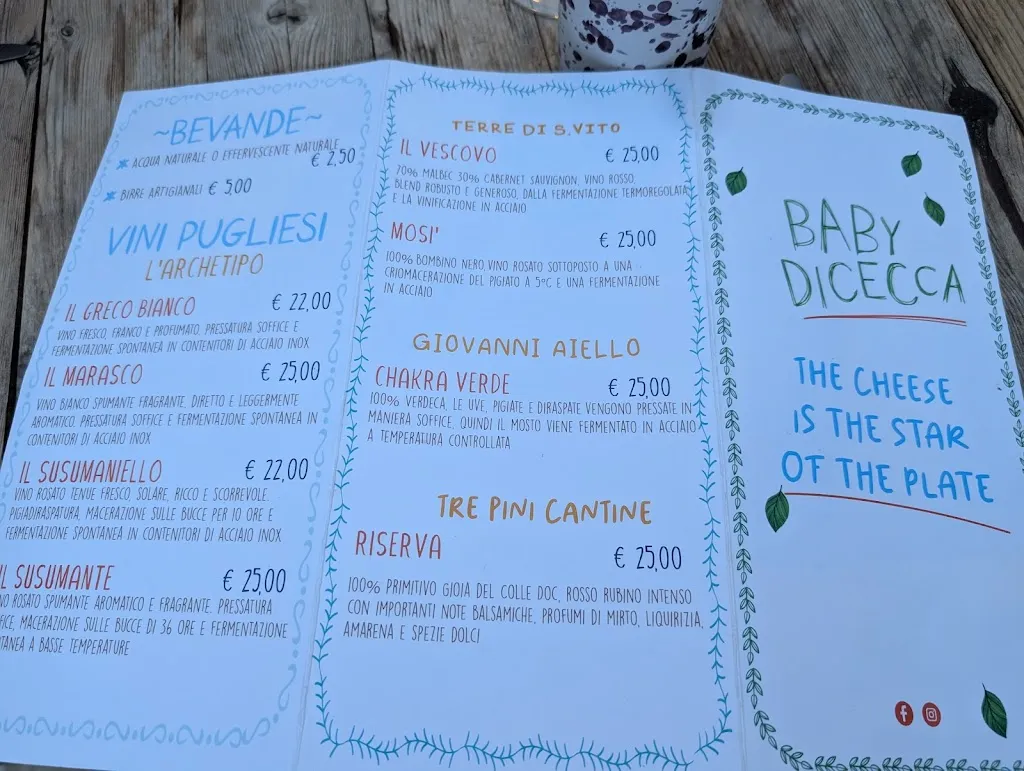 ~BEVANDE~
* ACQUA NATURALE O EFFERVESCENTE NATURALE
€ 2,50
* BIRRE ARTIGIANALI € 5,00
VINI PUGLIESI
L'ARCHETIPO
IL GRECO BIANCO € 22,00
VINO FRESCO, FRANCO E PROFUMATO. PRESSATURA SOFFICE E
FERMENTAZIONE SPONTANEA IN CONTENITORI DI ACCIAIO INOX
IL MARASCO € 25,00
VINO BIANCO SPUMANTE FRAGRANTE, DIRETTO E LEGGERMENTE
AROMATICO. PRESSATURA SOFFICE E FERMENTAZIONE SPONTANEA IN
CONTENITORI DI ACCIAIO INOX
IL SUSUMANIELLO € 22,00
VINO ROSATO TENUE FRESCO, SOLARE, RICCO E SCORREVOLE.
PIGIADIRASPATURA, MACERAZIONE SULLE BUCCE PER 10 ORE E
FERMENTAZIONE SPONTANEA IN CONTENITORI DI ACCIAIO INOX
IL SUSUMANTE € 25,00
ROSATO SPUMANTE AROMATICO E FRAGRANTE. PRESSATURA
MACERAZIONE SULLE BUCCE DI 36 ORE E FERMENTAZIONE
A BASSE TEMPERATURE
TERRE DI S.VITO
IL VESCOVO € 25,00
70% MALBEC 30% CABERNET SAUVIGNON, VINO ROSSO,
BLEND ROBUSTO E GENEROSO, DALLA FERMENTAZIONE TERMOREGOLATA
E LA VINIFICAZIONE IN ACCIAIO
MOSI' € 25,00
100% BOMBINO NERO, VINO ROSATO SOTTOPOSTO A UNA
CRIOMACERAZIONE DEL PIGIATO A 5°C E UNA FERMENTAZIONE
IN ACCIAIO
GIOVANNI AIELLO
CHAKRA VERDE € 25,00
100% VERDECA, LE UVE, PIGIATE E DIRASPATE VENGONO PRESSATE IN
MANIERA SOFFICE, QUINDI IL MOSTO VIENE FERMENTATO IN ACCIAIO
A TEMPERATURA CONTROLLATA
TRE PINI CANTINE
RISERVA € 25,00
100% PRIMITIVO GIOIA DEL COLLE DOC, ROSSO RUBINO INTENSO
CON IMPORTANTI NOTE BALSAMICHE, PROFUMI DI MIRTO, LIQUIRIZIA,
AMARENA E SPEZIE DOLCI
BABY
DICECCA
THE CHEESE
IS THE STAR
OF THE PLATE